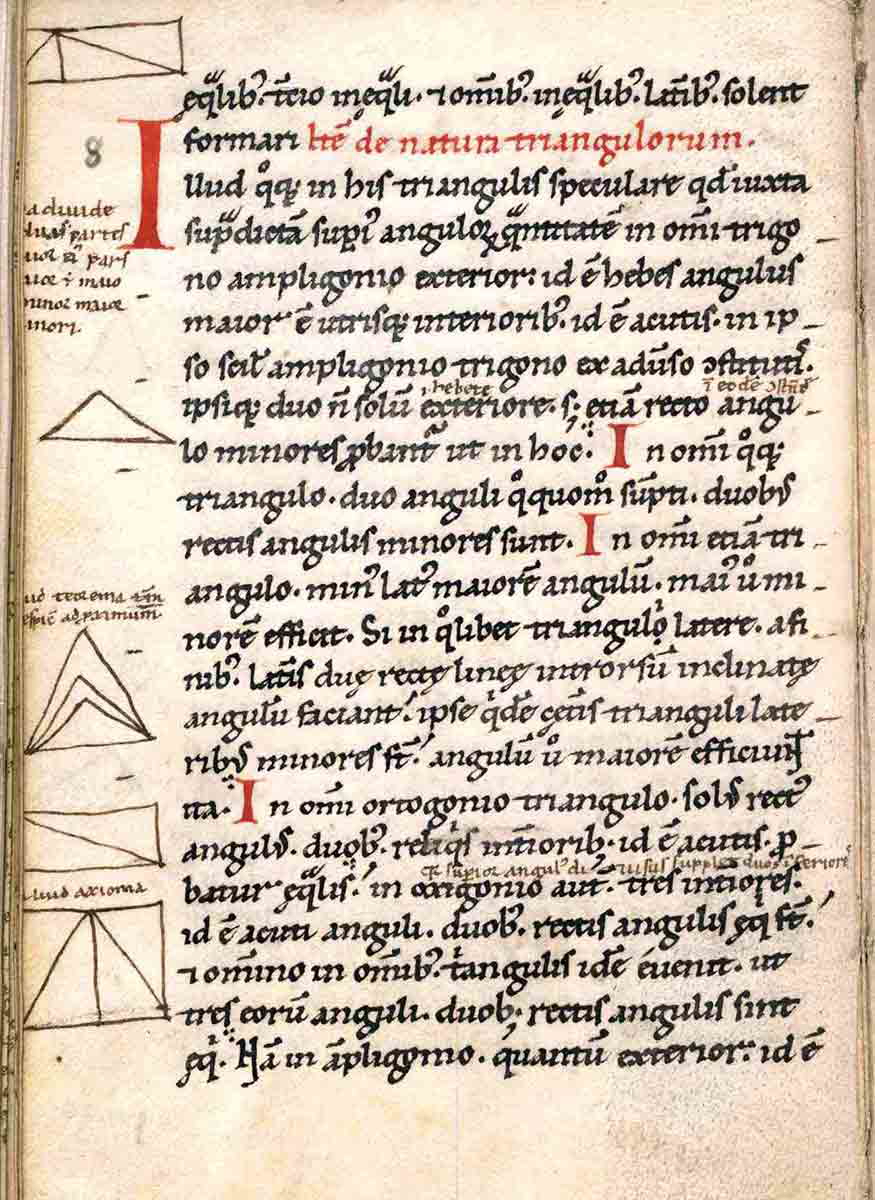 ęq̃lib᷒. t̃cio inęq̃li. ⁊ om̃ib᷒. inęq̃lib᷒. lat̃ib᷒. solent
formari Itẽ de natura triangulorum.
8
Illud q̊q; in his triangulis speculare qđ iuxta
sup̃dictã sup̃i anguloꝝ q̃ntitatẽ in om̃i trigo
no ampligonio exterior: id ẽ hebes angulus
maior ẽ utrisq; interiorib᷒. id ẽ acutis. in ip
so scil̃ ampligonio trigono ex adũso ↄstitutis.
hebete
ipsiq; duo ñ solũ exteriore. s; etiã recto angu
lo minores ꝓbant̃ ut in hoc. In om̃i q̊q;
triangulo. duo anguli q̊quom̊ sũpti. duobꝰ
rectis angulis minores sunt. In om̃i etiã tri
angulo. min᷒ lat᷒ maiorẽ angulũ. mai᷒ ů mi
norẽ efficit. Si in q̊libet trianguło latere. a fi
nib᷒. lat̃is duę rectę lineę introrsũ inclinatę
angulũ faciant. ipse q̇dẽ cęt̃is trianguli late
ribꝰ minores st̃. angulũ ů maiorẽ efficiunt
ita. In om̃i ortogonio triangulo. solꝰ rect᷒
angulꝰ. duob᷒. reliq̇s int̃iorib. id ẽ acutis. ꝓ
batur ęq̃lis. in oxigonio aut̃. tres int̃iores.
id ẽ acuti anguli. duob᷒. rectis angulis ęq̇ st̃.
⁊ omnino in om̃ib᷒. ṫangulis idẽ euenit. ut
tres eorũ anguli. duob᷒. rectis angulis sint
ęq̇. Nã in ãpligonio. quantũ exterior: id ẽ
a diuide
duas partes
minori.
aliud axioma